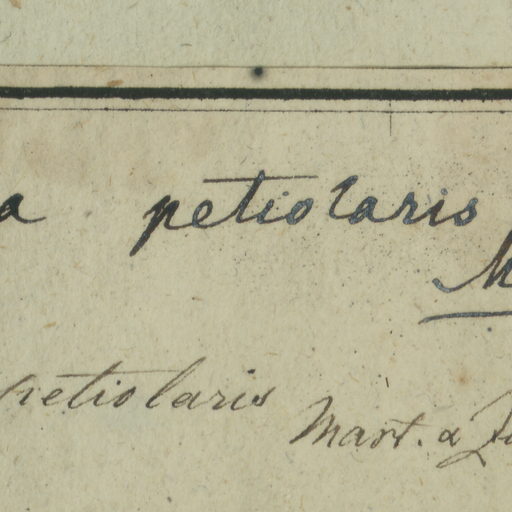 a petiolaris
M
petiolaris Mart. & Zu